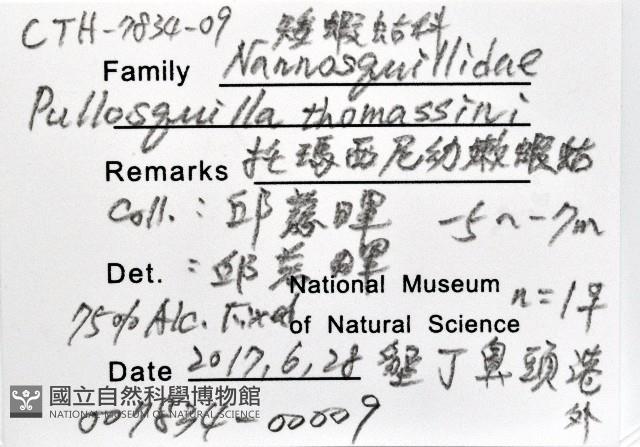 CTH-7834-09 矮蝦蛄科
Family Nannosquillidae
Pullosquilla thomassini
Remarks 托瑪西尼幼嫩蝦蛄
Coll.: 邱 暉 -5~-7m
Det. : 邱 暉
National Museum
75% Alc. Fixed of Natural Science n=1♀
Date 2017, 6, 28 墾丁鼻頭港
外
國立自然科學博物館
NATIONAL MUSEUM OF NATURAL SCIENCE
007834-00009